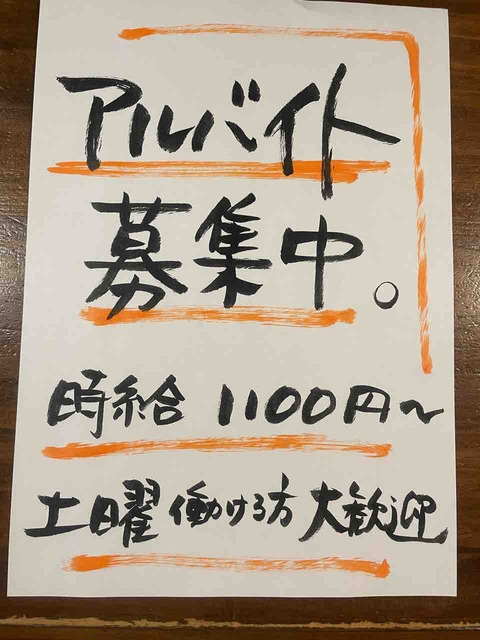 アルバイト
募集中。
時給 1100円〜
土日曜働ける方大歓迎